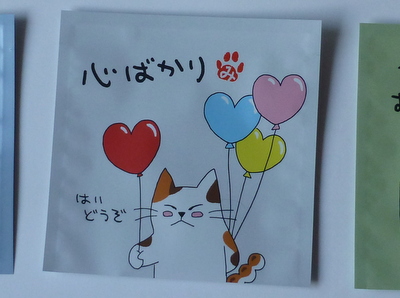 心ばかり
み
はい
どうぞ